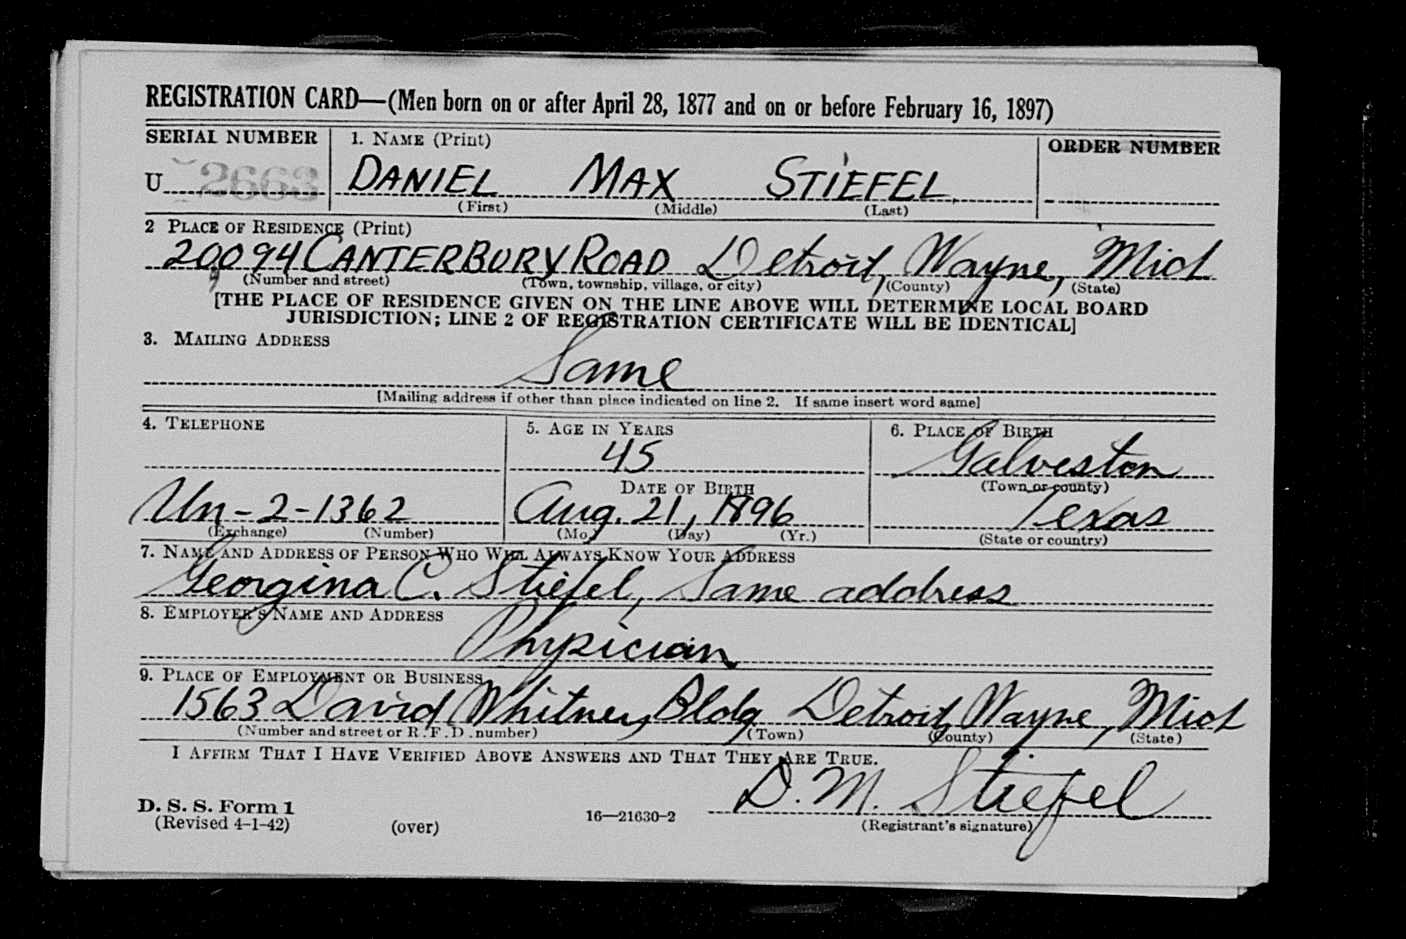 REGISTRATION CARD—(Men born on or after April 28, 1877 and on or before February 16, 1897)
SERIAL NUMBER
1. NAME (Print)
ORDER NUMBER
U 2663
DANIEL MAX STIEFEL
(First) (Middle) (Last)
2 PLACE OF RESIDENCE (Print)
20094 CANTERBURY ROAD Detroit, Wayne, Mich
(Number and street) (Town, township, village, or city) (County) (State)
[THE PLACE OF RESIDENCE GIVEN ON THE LINE ABOVE WILL DETERMINE LOCAL BOARD
JURISDICTION; LINE 2 OF REGISTRATION CERTIFICATE WILL BE IDENTICAL]
3. MAILING ADDRESS
Same
[Mailing address if other than place indicated on line 2. If same insert word same]
4. TELEPHONE
5. AGE IN YEARS
6. PLACE OF BIRTH
45
Galveston
DATE OF BIRTH
(Town or county)
Un-2-1362
Aug. 21, 1896
Texas
(Exchange) (Number)
(Mo.) (Day) (Yr.)
(State or country)
7. NAME AND ADDRESS OF PERSON WHO WILL ALWAYS KNOW YOUR ADDRESS
Georgina C. Stiefel, Same address
8. EMPLOYER'S NAME AND ADDRESS
Physician
9. PLACE OF EMPLOYMENT OR BUSINESS
1563 David Whitney Bldg Detroit, Wayne, Mich
(Number and street or R. F. D. number) (Town) (County) (State)
I AFFIRM THAT I HAVE VERIFIED ABOVE ANSWERS AND THAT THEY ARE TRUE.
D. M. Stiefel
D. S. S. Form 1
(Revised 4-1-42)
(over)
16—21630-2
(Registrant's signature)